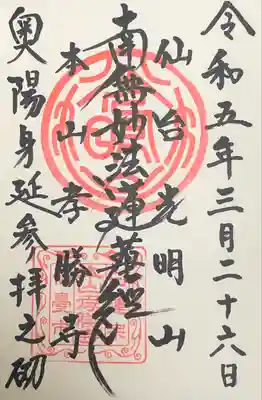 令和五年三月二十六日
仙台光明山
南無妙法蓮華経
本山孝勝寺
奥陽身延参拝之砌